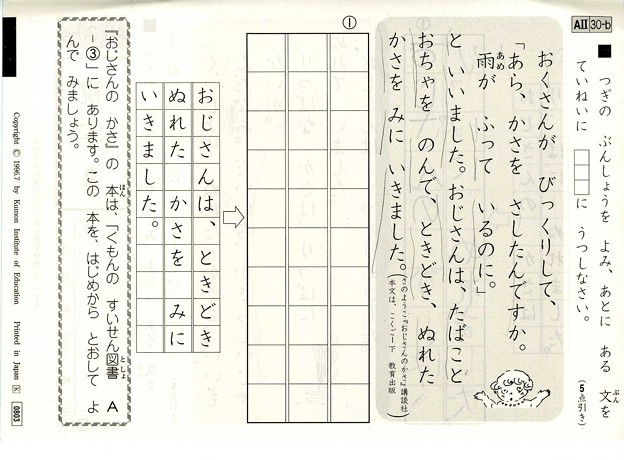 AII 30-b
■ つぎの ぶんしょうを よみ、あとに ある 文を
ぶん
ていねいに □□に うつしなさい。
(5点引き)
おくさんが びっくりして、
「あら、かさを さしたんですか。
雨が ふって いるのに。」
あめ
と いいました。おじさんは、たばこと
おちゃを のんで、ときどき、ぬれた
かさを みに いきました。
(さのようこ『おじさんのかさ』講談社
本文は、こくご一下 教育出版)
①
おじさんは、ときどき
ぬれた かさを みに
いきました。
『おじさんの かさ』の 本は、「くもんの すいせん図書 A
ほん
としょ
-③」に あります。この 本を、はじめから とおして よ
んで みましょう。
Copyright © 1996.7 by Kumon Institute of Education Printed in Japan
0803